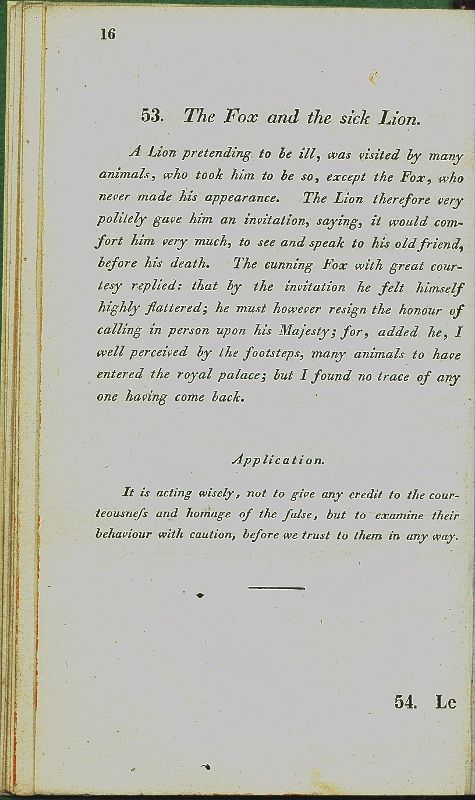 16
53. The Fox and the sick Lion.
A Lion pretending to be ill, was visited by many
animals, who took him to be so, except the Fox, who
never made his appearance. The Lion therefore very
politely gave him an invitation, saying, it would com-
fort him very much, to see and speak to his old friend,
before his death. The cunning Fox with great cour-
tesy replied: that by the invitation he felt himself
highly flattered; he must however resign the honour of
calling in person upon his Majesty; for, added he, I
well perceived by the footsteps, many animals to have
entered the royal palace; but I found no trace of any
one having come back.
Application.
It is acting wisely, not to give any credit to the cour-
teousneſs and homage of the false, but to examine their
behaviour with caution, before we trust to them in any way.
54. Le